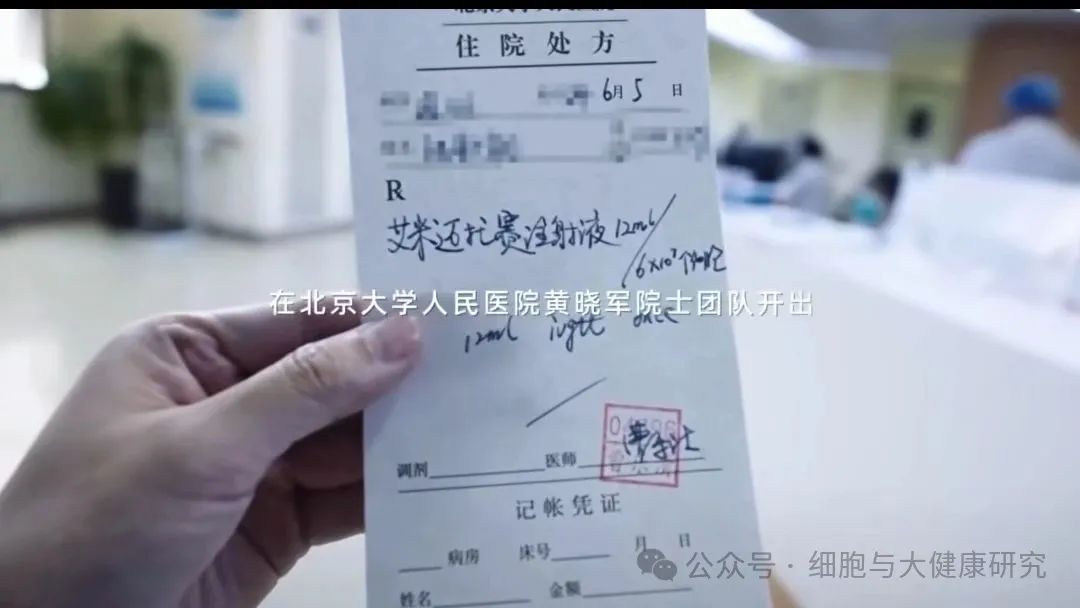 住院处方
6月5日
R
艾米迈托赛注射液12ml/
6×10⁷个细胞
在北京大学人民医院黄晓军院士团队开出
12ml ivgtt once
调剂 医师
记帐凭证
病房 床号 月 日
姓名 金额
公众号·细胞与大健康研究